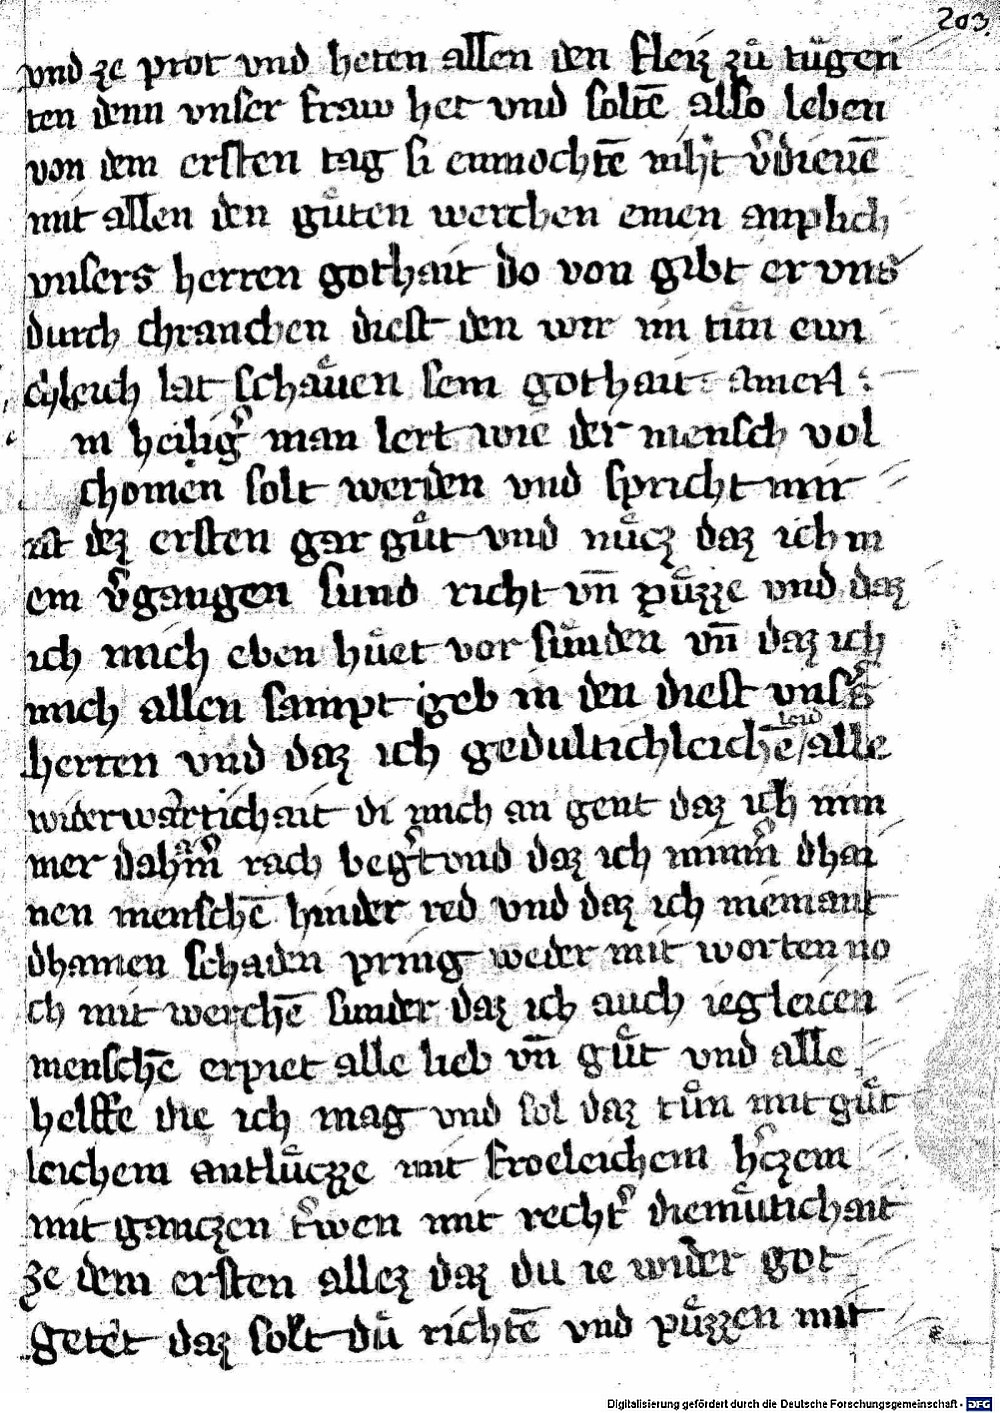 203.
vnd ze prot vnd heten allen den fleiz zuͤ tuͤgen
ten denn vnser fraw het vnd soltē also leben
von dem ersten tag si enmochtē niht v̉dienē
mit allen den guͤten werchen einen anplich
vnsers herren gothait do von gibt er vns
durch chranchen diest den wir im tuͤn ewi
chleich lat schaͤuen sein gothait amen
in heilig̉ man lert wie der mensch vol
chomen solt werden vnd spricht mir
ist dez ersten gar guͤt vnd nuͤcz daz ich m
ein v̉gangen sund richt vn̄ puͤzze vnd daz
ich mich eben huͤet vor suͤnden vn̄ daz ich
mich allen sampt geb in den diest vnsẻs
herren vnd daz ich gedultichleichē leid alle
widerwaͤrtichait di mich an gent daz ich nim
mer rach beg̉t vnd daz ich nimm̉ dhai
nen menschē hinder red vnd daz ich niemant
dhainen schaden pring weder mit worten no
ch mit werchē sunder daz ich auch iegleicen
menschē erpiet alle lieb vn̄ guͤt vnd alle
helffe die ich mag vnd sol daz tuͤn mit guͤt
leichem antluͤczze mit froeleichem h̉czem
mit ganczen t̉wen mit recht̉ diemuͤtichait
ze dem ersten allez daz du ie wider got
getet daz solt duͤ richtē vnd puͤzzen mit
Digitalisierung gefördert durch die Deutsche Forschungsgemeinschaft - DFG